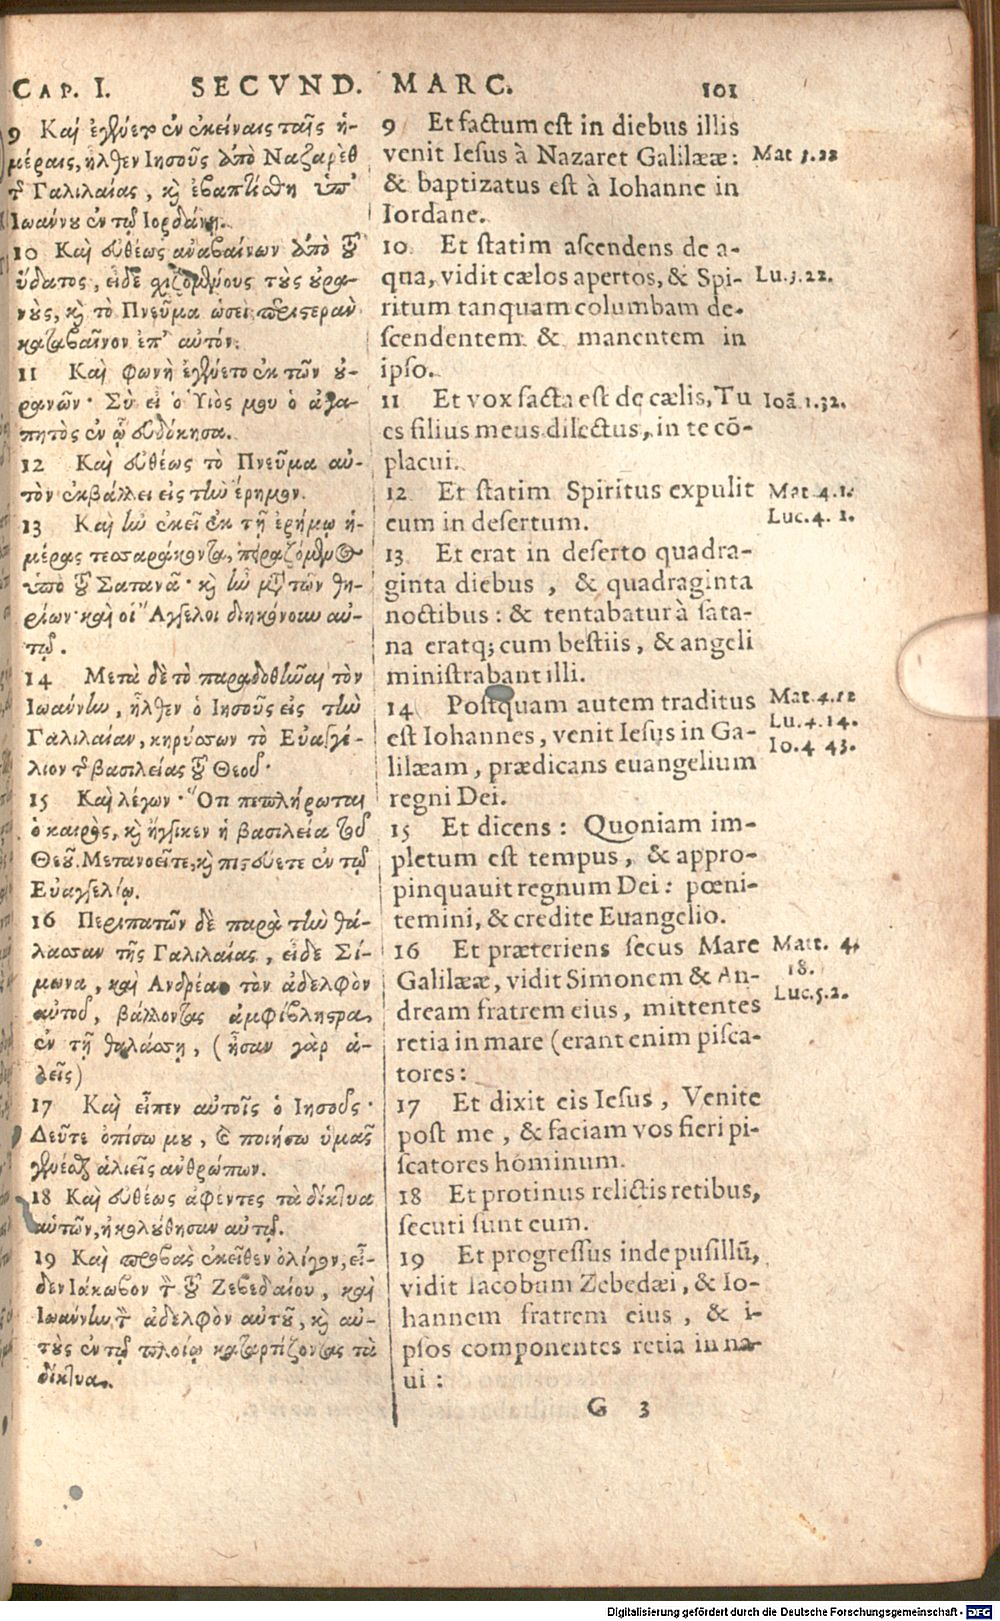 CAP. I. SECVND. MARC. 101
9 Καὶ ἐγένετο ἐν ἐκείναις ταῖς ἡ-
μέραις, ἦλθεν Ιησοῦς ἀπὸ Ναζαρὲθ
τῆς Γαλιλαίας, καὶ ἐβαπτίσθη ὑπ'
Ιωάννου ἐν τῷ Ιορδάνῃ.
10 Καὶ εὐθέως ἀναβαίνων ἀπὸ τοῦ
ὕδατος, εἶδε σχιζομένους τοὺς οὐρα-
νοὺς, καὶ τὸ Πνεῦμα ὡσεὶ περιστερὰν
καταβαῖνον ἐπ' αὐτόν.
11 Καὶ φωνὴ ἐγένετο ἐκ τῶν οὐ-
ρανῶν· Σὺ εἶ ὁ Υἱός μου ὁ ἀγα-
πητὸς ἐν ᾧ εὐδόκησα.
12 Καὶ εὐθέως τὸ Πνεῦμα αὐ-
τὸν ἐκβάλλει εἰς τὴν ἔρημον.
13 Καὶ ἦν ἐκεῖ ἐκ τῇ ἐρήμῳ ἡ-
μέρας τεσσαράκοντα, πειραζόμενος
ὑπὸ τοῦ Σατανᾶ· καὶ ἦν μετὰ τῶν θη-
ρίων· καὶ οἱ Ἄγγελοι διηκόνουν αὐ-
τῷ.
14 Μετὰ δὲ τὸ παραδοθῆναι τὸν
Ιωάννην, ἦλθεν ὁ Ιησοῦς εἰς τὴν
Γαλιλαίαν, κηρύσσων τὸ Εὐαγγέ-
λιον τῆς βασιλείας τοῦ Θεοῦ·
15 Καὶ λέγων· Ὅτι πεπλήρωται
ὁ καιρὸς, καὶ ἤγγικεν ἡ βασιλεία τοῦ
Θεοῦ. Μετανοεῖτε, καὶ πιστεύετε ἐν τῷ
Εὐαγγελίῳ.
16 Περιπατῶν δὲ παρὰ τὴν θά-
λασσαν τῆς Γαλιλαίας, εἶδε Σί-
μωνα, καὶ Ανδρέαν τὸν ἀδελφὸν
αὐτοῦ, βάλλοντας ἀμφίβληστρα
ἐν τῇ θαλάσσῃ, (ἦσαν γὰρ ἁ-
λεῖς)
17 Καὶ εἶπεν αὐτοῖς ὁ Ιησοῦς·
Δεῦτε ὀπίσω μου, καὶ ποιήσω ὑμᾶς
γενέσθαι ἁλιεῖς ἀνθρώπων.
18 Καὶ εὐθέως ἀφέντες τὰ δίκτυα
αὑτῶν, ἠκολούθησαν αὐτῷ.
19 Καὶ προβὰς ἐκεῖθεν ὀλίγον, εἶ-
δεν Ιάκωβον τὸν τοῦ Ζεβεδαίου, καὶ
Ιωάννην τὸν ἀδελφὸν αὐτοῦ, καὶ αὐ-
τοὺς ἐν τῷ πλοίῳ καταρτίζοντας τὰ
δίκτυα.
9 Et factum est in diebus illis
venit Iesus à Nazaret Galilææ:
& baptizatus est à Iohanne in
Iordane.
10 Et statim ascendens de a-
qua, vidit cælos apertos, & Spi-
ritum tanquam columbam de-
scendentem & manentem in
ipso.
11 Et vox facta est de cælis, Tu
es filius meus dilectus, in te cō-
placui.
12 Et statim Spiritus expulit
eum in desertum.
13 Et erat in deserto quadra-
ginta diebus, & quadraginta
noctibus: & tentabatur à sata-
na eratq; cum bestiis, & angeli
ministrabant illi.
14 Postquam autem traditus
est Iohannes, venit Iesus in Ga-
lilæam, prædicans euangelium
regni Dei.
15 Et dicens: Quoniam im-
pletum est tempus, & appro-
pinquauit regnum Dei: pœni-
temini, & credite Euangelio.
16 Et præteriens secus Mare
Galilææ, vidit Simonem & An-
dream fratrem eius, mittentes
retia in mare (erant enim pisca-
tores:
17 Et dixit eis Iesus, Venite
post me, & faciam vos fieri pi-
scatores hominum.
18 Et protinus relictis retibus,
secuti sunt eum.
19 Et progressus inde pusillū,
vidit Iacobum Zebedæi, & Io-
hannem fratrem eius, & i-
psos componentes retia in na-
ui:
G 3
Mat 3.22
Lu.3.22.
Ioā.1.32.
Mat.4.1.
Luc.4. 1.
Mat.4.12
Lu.4.14.
Io.4 43.
Matt. 4.
18.
Luc.5.2.
Digitalisierung gefördert durch die Deutsche Forschungsgemeinschaft - DFG